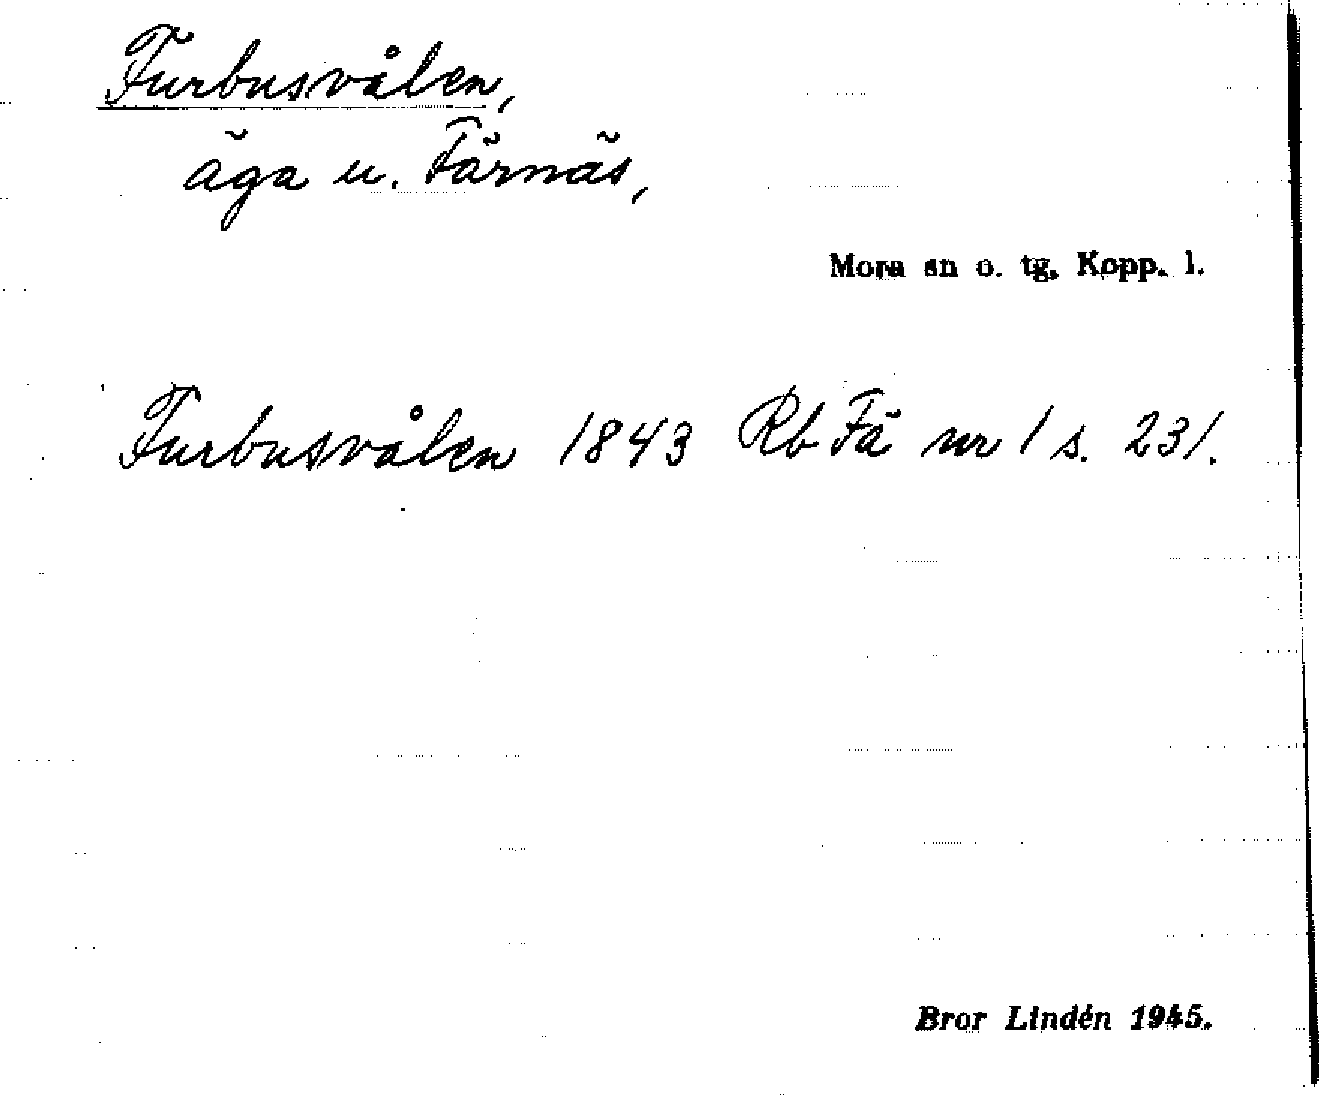 Furbusvålen,
äga u. Färnäs,
Mora sn o. tg. Kopp. l.
Furbusvålen 1843 Rb Fä nr 1 s. 231.
Bror Lindén 1945.